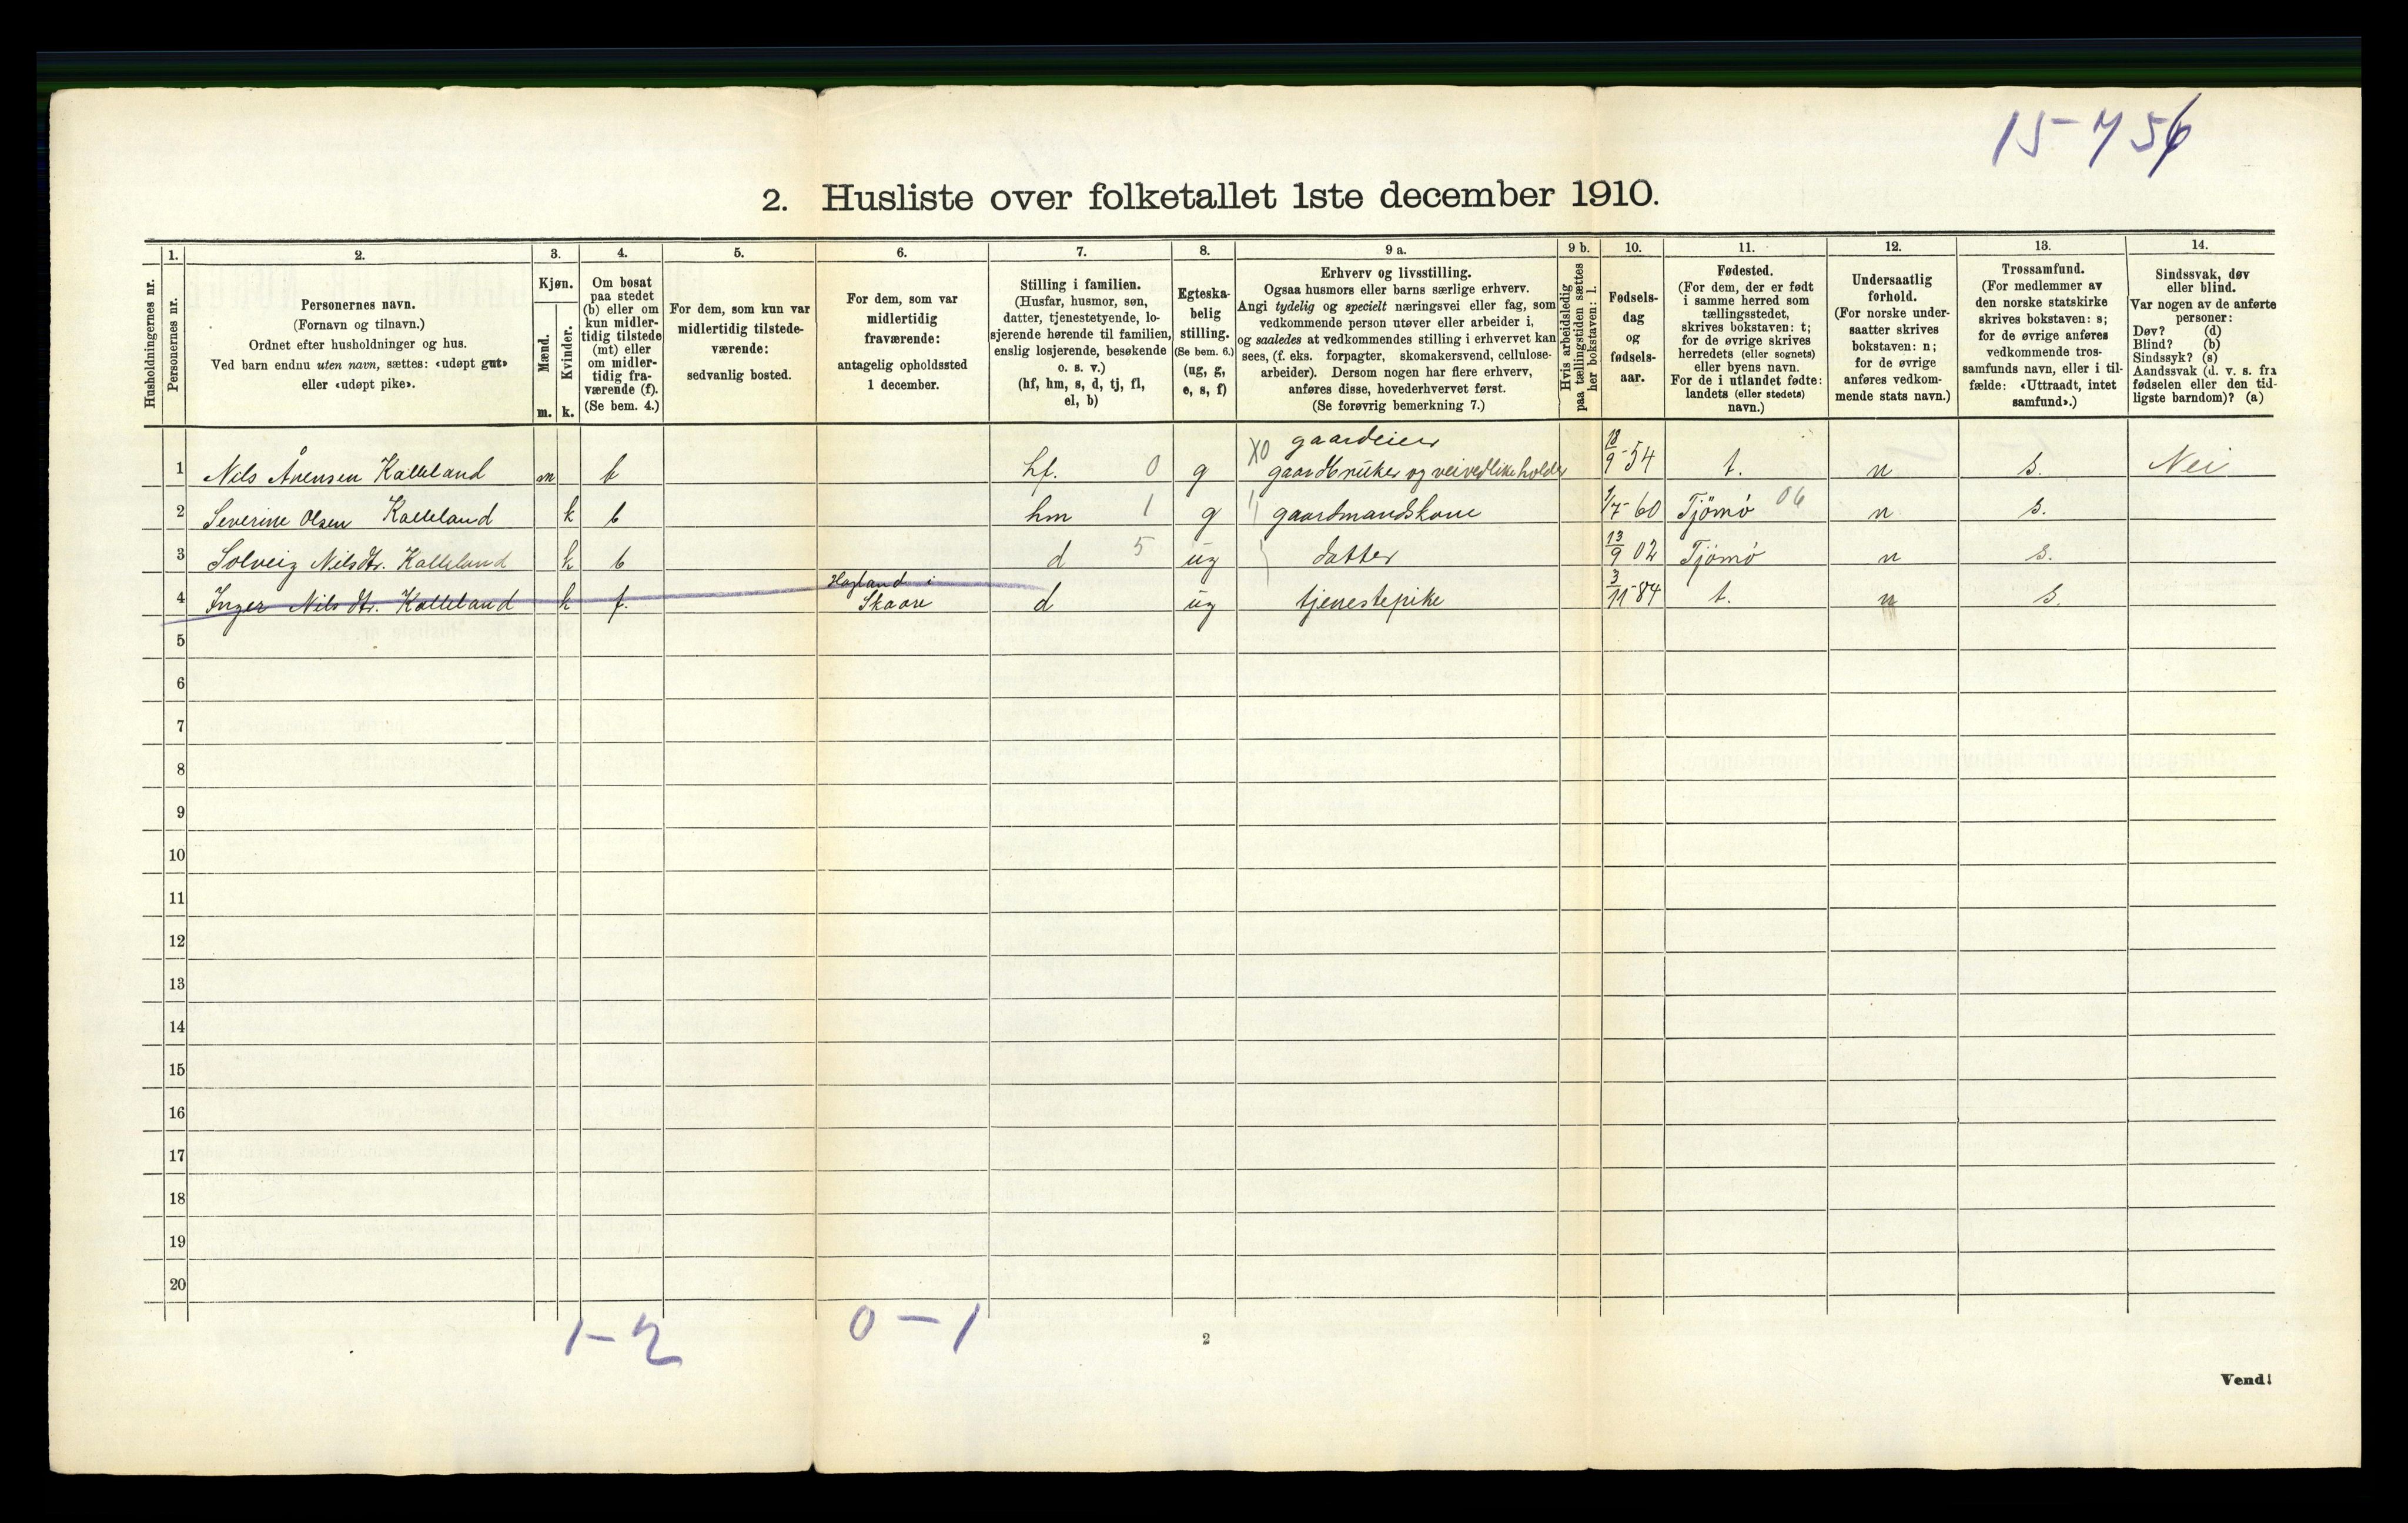 15-756
2. Husliste over folketallet 1ste december 1910.
Husholdningernes nr.
1.
Personernes nr.
2.
Personernes navn.
(Fornavn og tilnavn.)
Ordnet efter husholdninger og hus.
Ved barn endnu uten navn, sættes: «udøpt gut»
eller «udøpt pike».
3.
Kjøn.
Mænd.
m.
Kvinder.
k.
4.
Om bosat
paa stedet
(b) eller om
kun midler-
tidig tilstede
(mt) eller
om midler-
tidig fra-
værende (f).
(Se bem. 4.)
5.
For dem, som kun var
midlertidig tilstede-
værende:
sedvanlig bosted.
6.
For dem, som var
midlertidig
fraværende:
antagelig opholdssted
1 december.
7.
Stilling i familien.
(Husfar, husmor, søn,
datter, tjenestetyende, lo-
sjerende hørende til familien,
enslig losjerende, besøkende
o. s. v.)
(hf, hm, s, d, tj, fl,
el, b)
8.
Egteska-
belig
stilling.
(Se bem. 6.)
(ug, g,
e, s, f)
9 a.
Erhverv og livsstilling.
Ogsaa husmors eller barns særlige erhverv.
Angi tydelig og specielt næringsvei eller fag, som
vedkommende person utøver eller arbeider i,
og saaledes at vedkommendes stilling i erhvervet kan
sees, (f. eks. forpagter, skomakersvend, cellulose-
arbeider). Dersom nogen har flere erhverv,
anføres disse, hovederhvervet først.
(Se forøvrig bemerkning 7.)
9 b.
Hvis arbeidsledig
paa tællingstiden sættes
her bokstaven: l.
10.
Fødsels-
dag
og
fødsels-
aar.
11.
Fødested.
(For dem, der er født
i samme herred som
tællingsstedet,
skrives bokstaven: t;
for de øvrige skrives
herredets (eller sognets)
eller byens navn.
For de i utlandet fødte:
landets (eller stedets)
navn.)
12.
Undersaatlig
forhold.
(For norske under-
saatter skrives
bokstaven: n;
for de øvrige
anføres vedkom-
mende stats navn.)
13.
Trossamfund.
(For medlemmer av
den norske statskirke
skrives bokstaven: s;
for de øvrige anføres
vedkommende tros-
samfunds navn, eller i til-
fælde: «Uttraadt, intet
samfund».)
14.
Sindssvak, døv
eller blind.
Var nogen av de anførte
personer:
Døv? (d)
Blind? (b)
Sindssyk? (s)
Aandssvak (d. v. s. fra
fødselen eller den tid-
ligste barndom)? (a)
gaardeier
1 Nils Ånensen Kalleland m b hf. 0 g X0 gaardbruker og veivedlikeholder 18/9-54 t. n s. Nei
2 Severine Olsen Kalleland k b hm 1 g gaardmandskone 1/7-60 Tjömö 06 n s.
3 Solveig Nilsdtr. Kalleland k b d 5 ug datter 13/9 02 Tjömö n s.
Hagland i
4 Inger Nilsdtr. Kalleland k f. Skaare d ug tjenestepike 3/11-84 t. n s.
5
6
7
8
9
10
11
12
13
14
15
16
17
18
19
20
1-2 0-1
2
Vend!